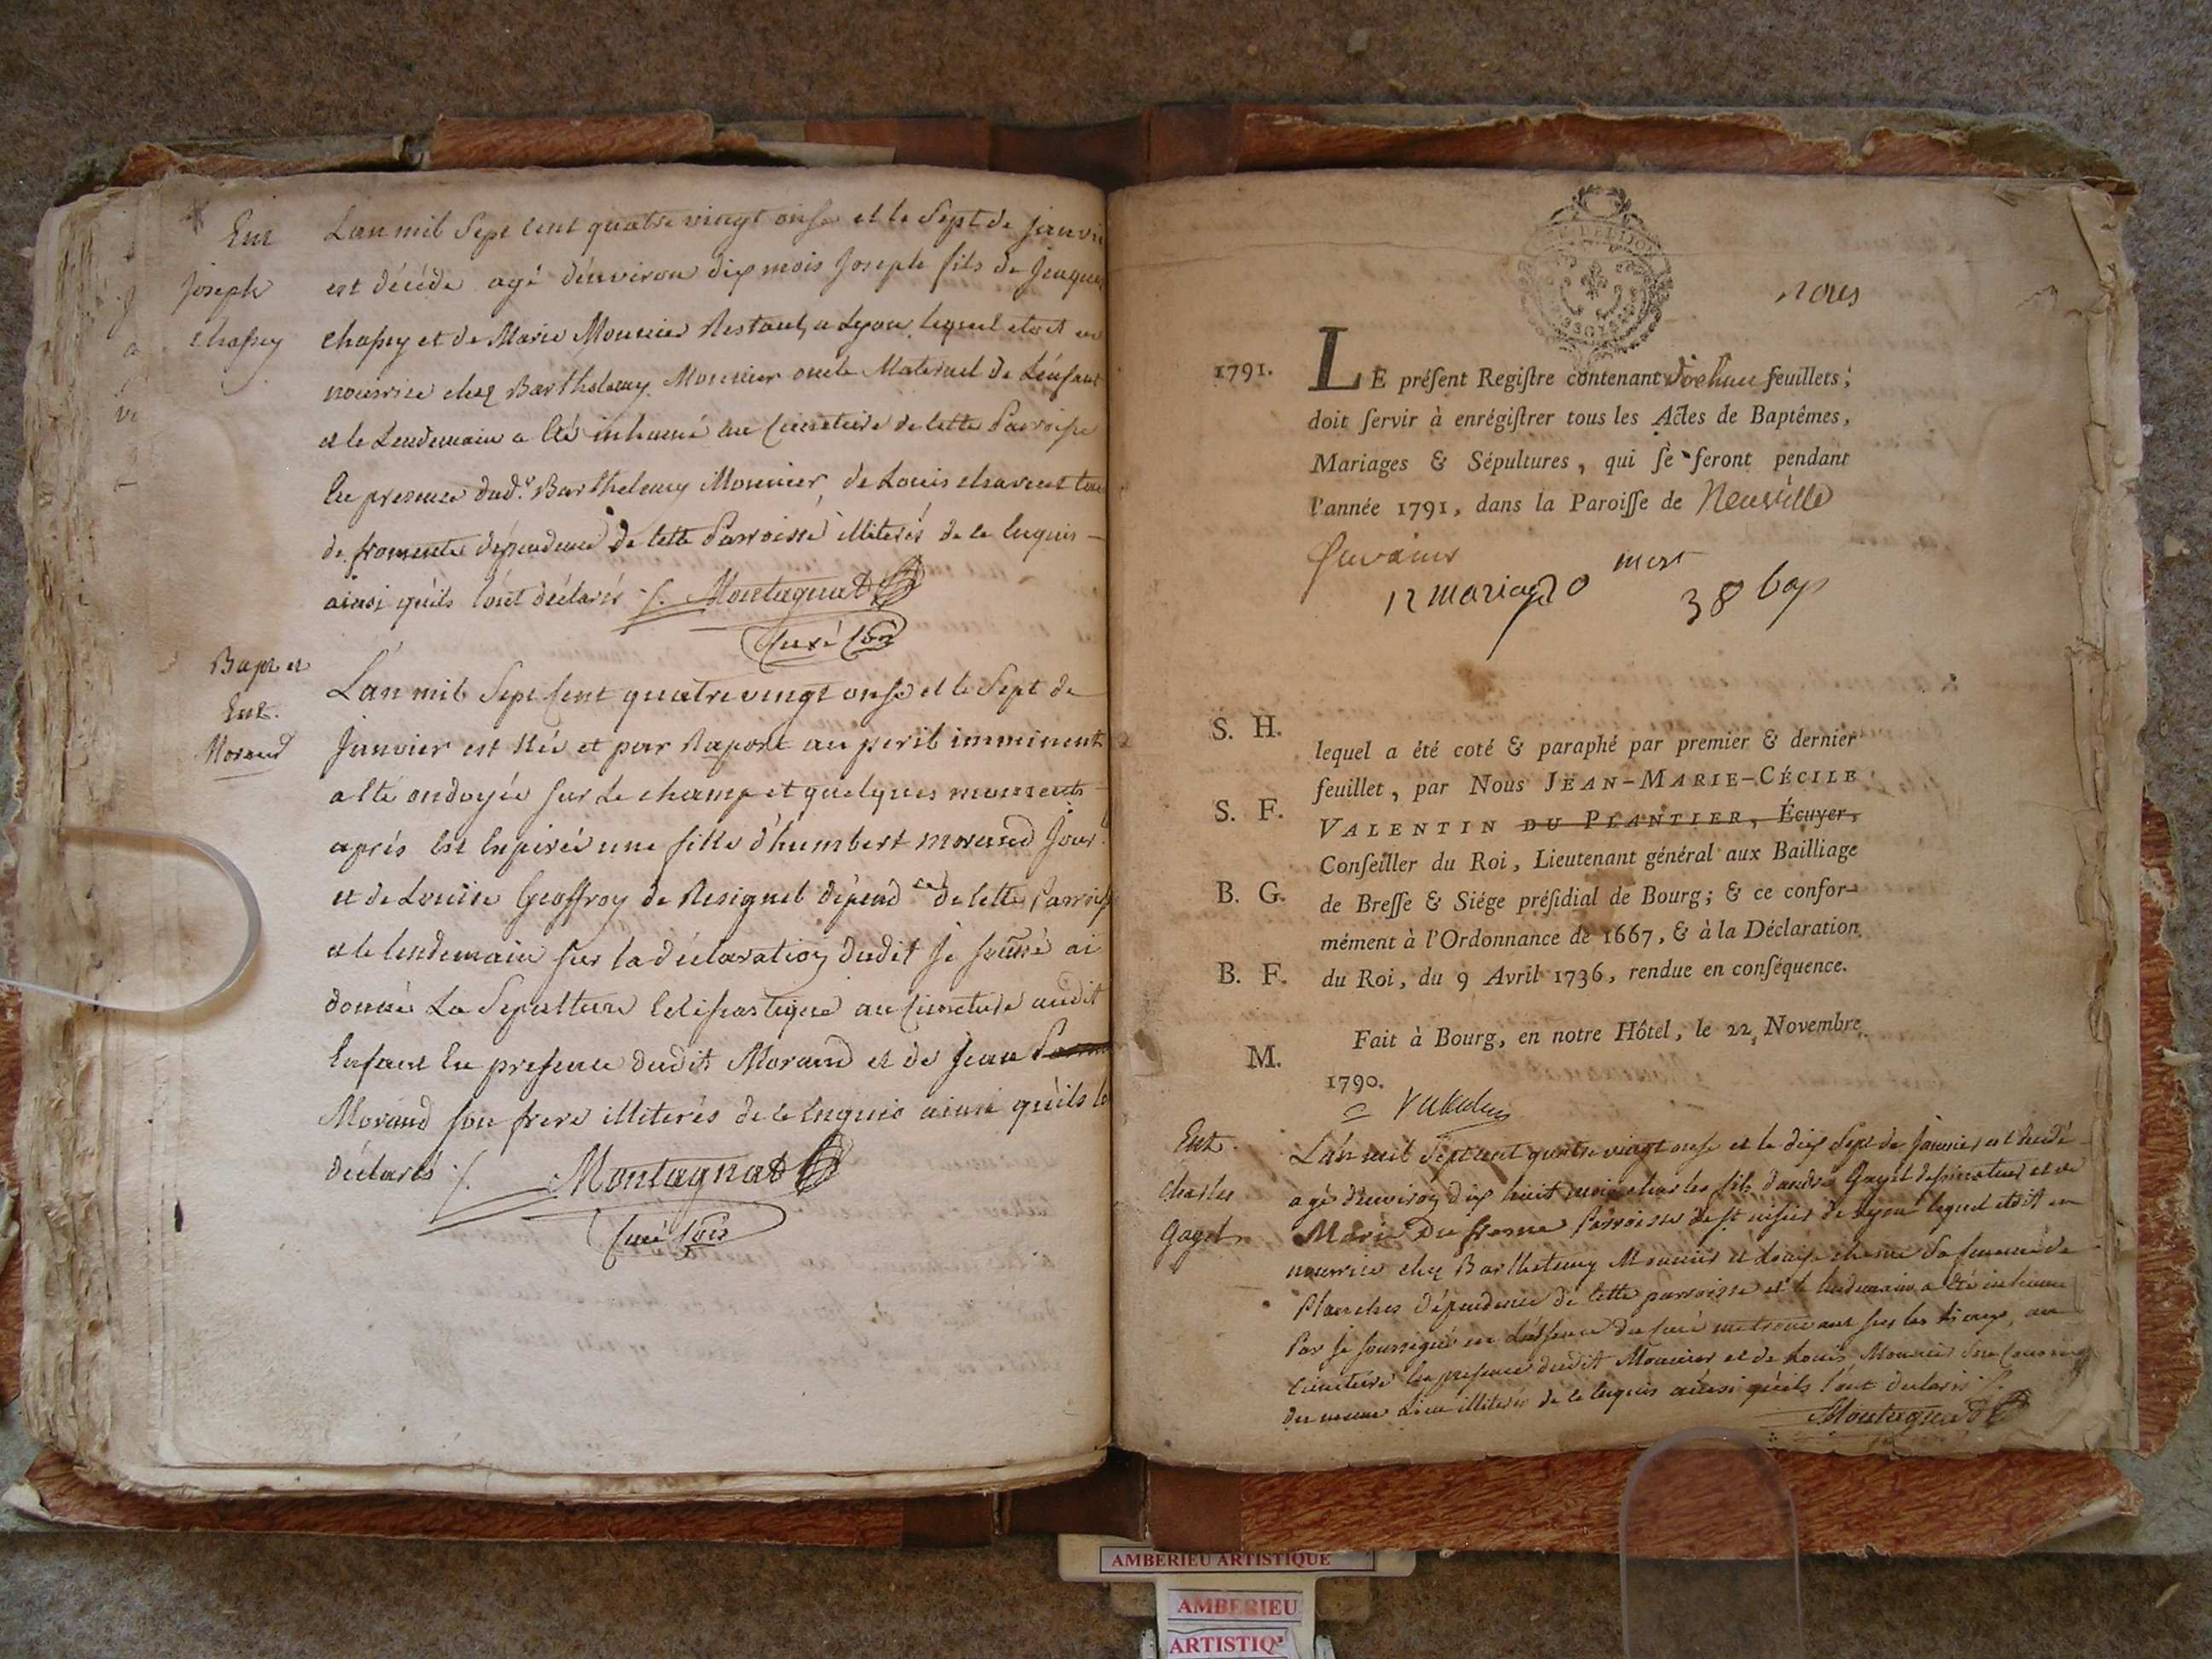 Ent
Joseph
chapuy
L'an mil Sept Cent quatre vingt onse et le Sept de Janvi
est décédé agé d'environ dix mois Joseph fils de Jacques
chapuy et de Marie Mounier Restant a Lyon lequel etoit en
nourrice chez Barthelemy Mounier oncle Maternel de L'énfant
et le Lendemain a été inhumé au Cimetiere de cette Parroisse
En presence dud.t Barthelemy Mounier, de Louis charvet tous
de fromente dépendence de cette Parroisse illiterés de ce Enquis
ainsi qu'ils l'ont déclarés ./. Montagnat
Curé
Bapt et
Ent.
Morand
L'an mil Sept Cent quatre vingt onse et le Sept de
Janvier est Née et par Raport au peril imminent
a été ondoyée sur Le champ et quelques moments
aprés est Expirée une fille d'humbert morand Jour.
et de Louise Geoffroy de Resignel dépend ce de cette Parroiss
et le lendemain sur la déclaration dudit je soussé ai
donnée La Sepulture Eclesiastique au Cimetiere audit
Enfant En presence dudit Morand et de Jean
Morand son frere illiterés de ce Enquis ainsi qu'ils lo
déclarés ./. Montagnat
Curé
nous
1791. LE préſent Regiſtre contenant feuillets;
doit ſervir à enrégiſtrer tous les Actes de Baptêmes,
Mariages & Sépultures, qui ſe feront pendant
l'année 1791, dans la Paroiſſe de Neuville
12 mariag 20 mort 38 bap
S. H.
lequel a été coté & paraphé par premier & dernier
feuillet, par Nous JEAN-MARIE-CÉCILE
S. F.
VALENTIN DU PLANTIER, Écuyer,
Conſeiller du Roi, Lieutenant général aux Bailliage
B. G. de Breſſe & Siége préſidial de Bourg; & ce confor-
mément à l'Ordonnance de 1667, & à la Déclaration
B. F. du Roi, du 9 Avril 1736, rendue en conſéquence.
Fait à Bourg, en notre Hôtel, le 22 Novembre
M.
1790.
Ent.
Charles
Gayet
L'an mil Sept cent quatre vingt onse et le dix Sept de Janvier est décédé
agé d'environ dix huit mois charles fils d'andré Gayet dessinateur et de
Marie Du fresne Parroisse de St nisier de Lyon lequel etoit en
nourrice chez Barthelemy Mounier et Louise sa femme de
Planches dépendence de cette parroisse et le lendemain a été inhumé
Par je soussigné en L'absence du curé me trouvant sur les lieux, au
Cimetiere En presence dudit Mounier et de Louis Mounier son Cousin
du meme lieu illiterés de ce Enquis ainsi qu'ils l'ont declarés ./.
Montagnat
AMBERIEU ARTISTIQUE
AMBERIEU
ARTISTIQ'